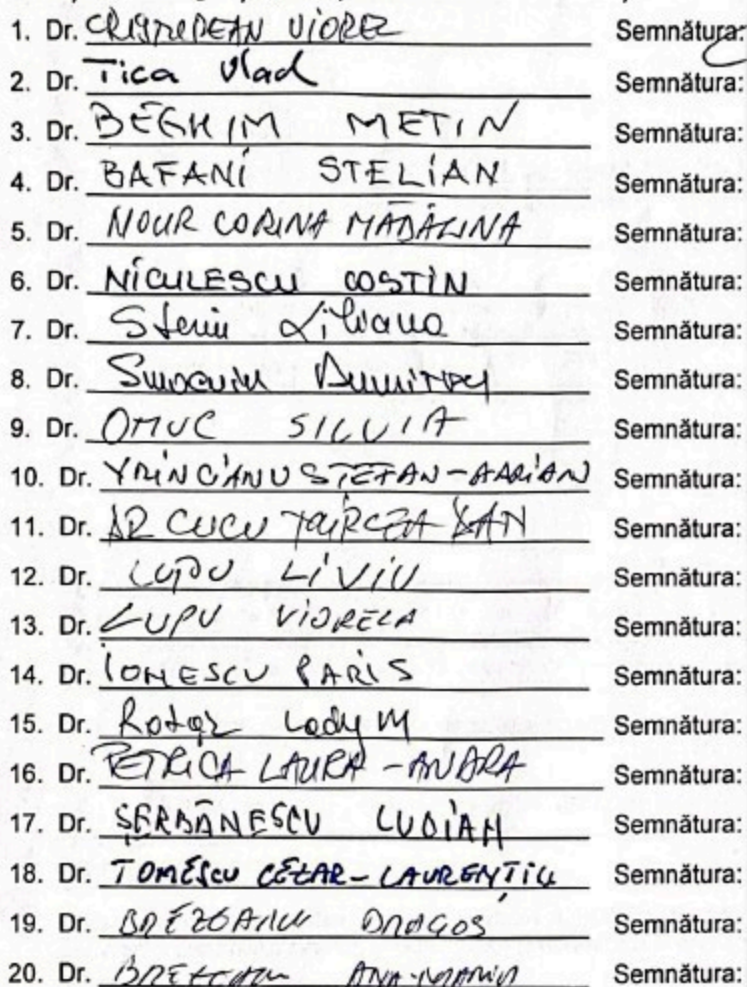 1. Dr. CRISTUREAN VIOREL Semnătura:
2. Dr. Tica Vlad Semnătura:
3. Dr. BEGHIM METIN Semnătura:
4. Dr. BAFANI STELIAN Semnătura:
5. Dr. NOUR CORINA MĂDĂLINA Semnătura:
6. Dr. NICULESCU COSTIN Semnătura:
7. Dr. Steriu Liliana Semnătura:
8. Dr. Dumitru Semnătura:
9. Dr. OMUC SILVIA Semnătura:
10. Dr. VRINCIANU STEFAN-ADRIAN Semnătura:
11. Dr. CUCU MIRCEA DAN Semnătura:
12. Dr. LUPU LIVIU Semnătura:
13. Dr. LUPU VIORELA Semnătura:
14. Dr. IONESCU PARIS Semnătura:
15. Dr. Rotar M Semnătura:
16. Dr. PETRICA LAURA-ANDRA Semnătura:
17. Dr. ȘERBĂNESCU LUCIAN Semnătura:
18. Dr. TOMESCU CEZAR-LAURENȚIU Semnătura:
19. Dr. BREZEANU DRAGOȘ Semnătura:
20. Dr. BREZEANU ANA-MARIA Semnătura: